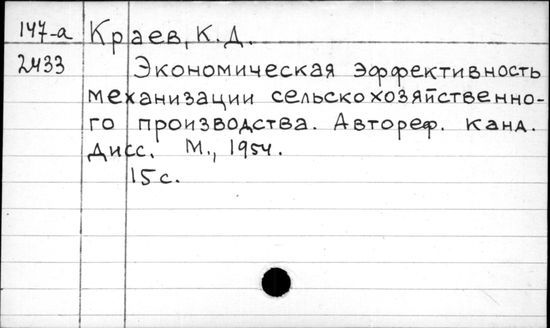 147-а Краев, К. Д.
2433 Экономическая эффективность
механизации сельскохозяйственно-
го производства. Автореф. канд.
дисс. М., 1954.
15 с.